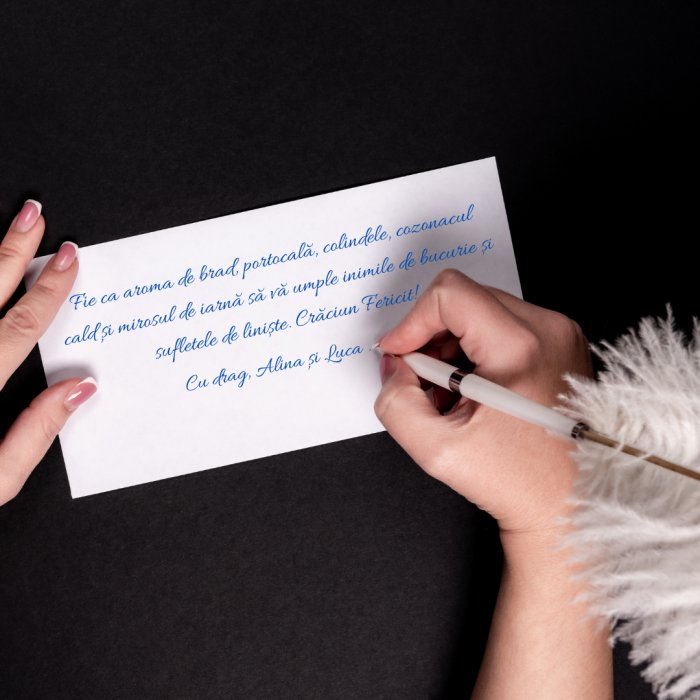 Fie ca aroma de brad, portocală, colindele, cozonacul
cald și mirosul de iarnă să vă umple inimile de bucurie și
sufletele de liniște. Crăciun Fericit!
Cu drag, Alina și Luca